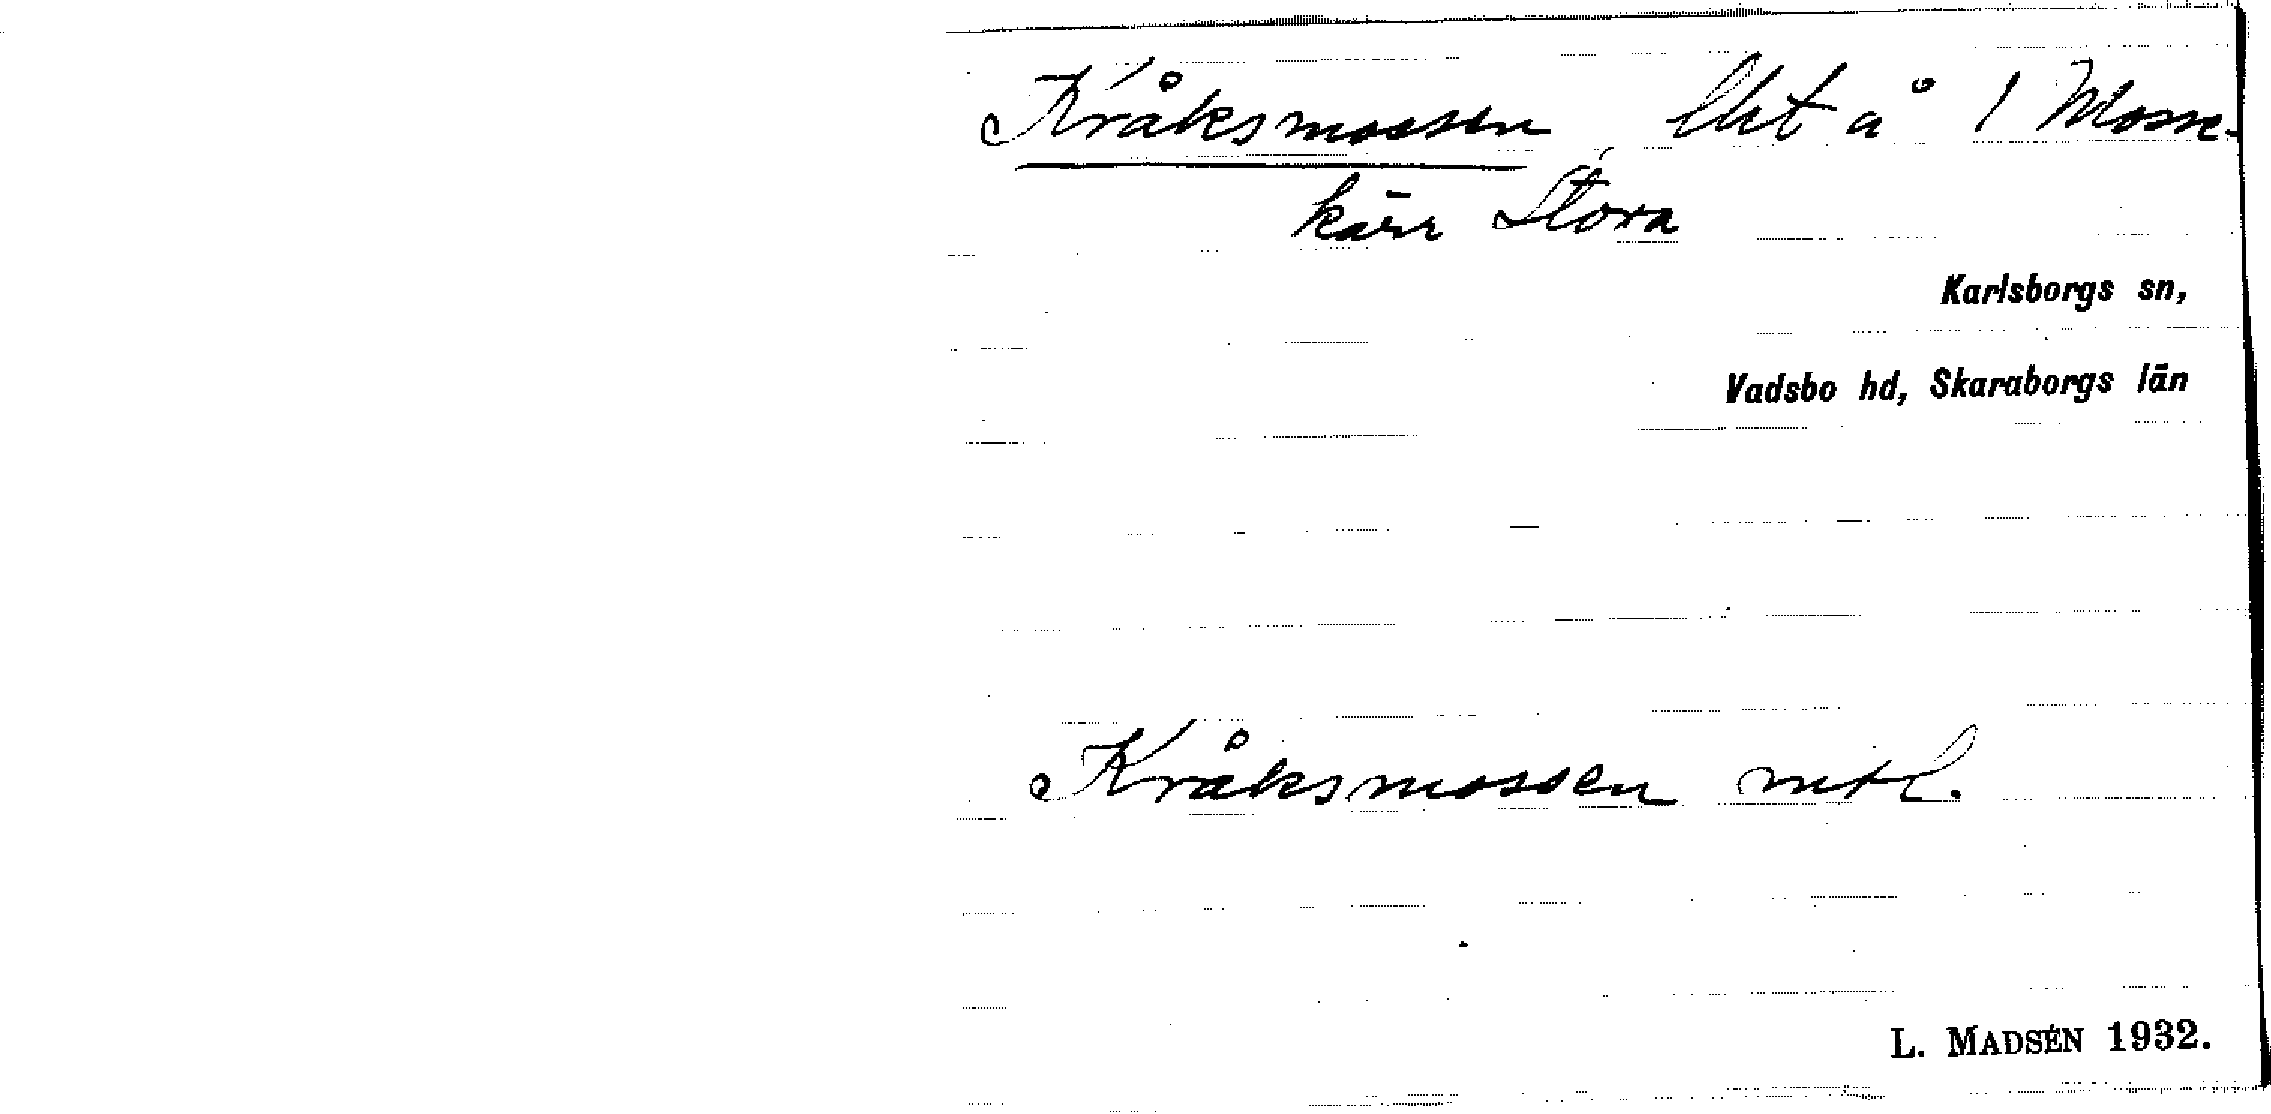 Kråksmossen lht å 1 Mosse-
kärr Stora
Karlsborgs sn,
Vadsbo hd, Skaraborgs län
Kråksmossen mtl.
L. MADSÉN 1932.